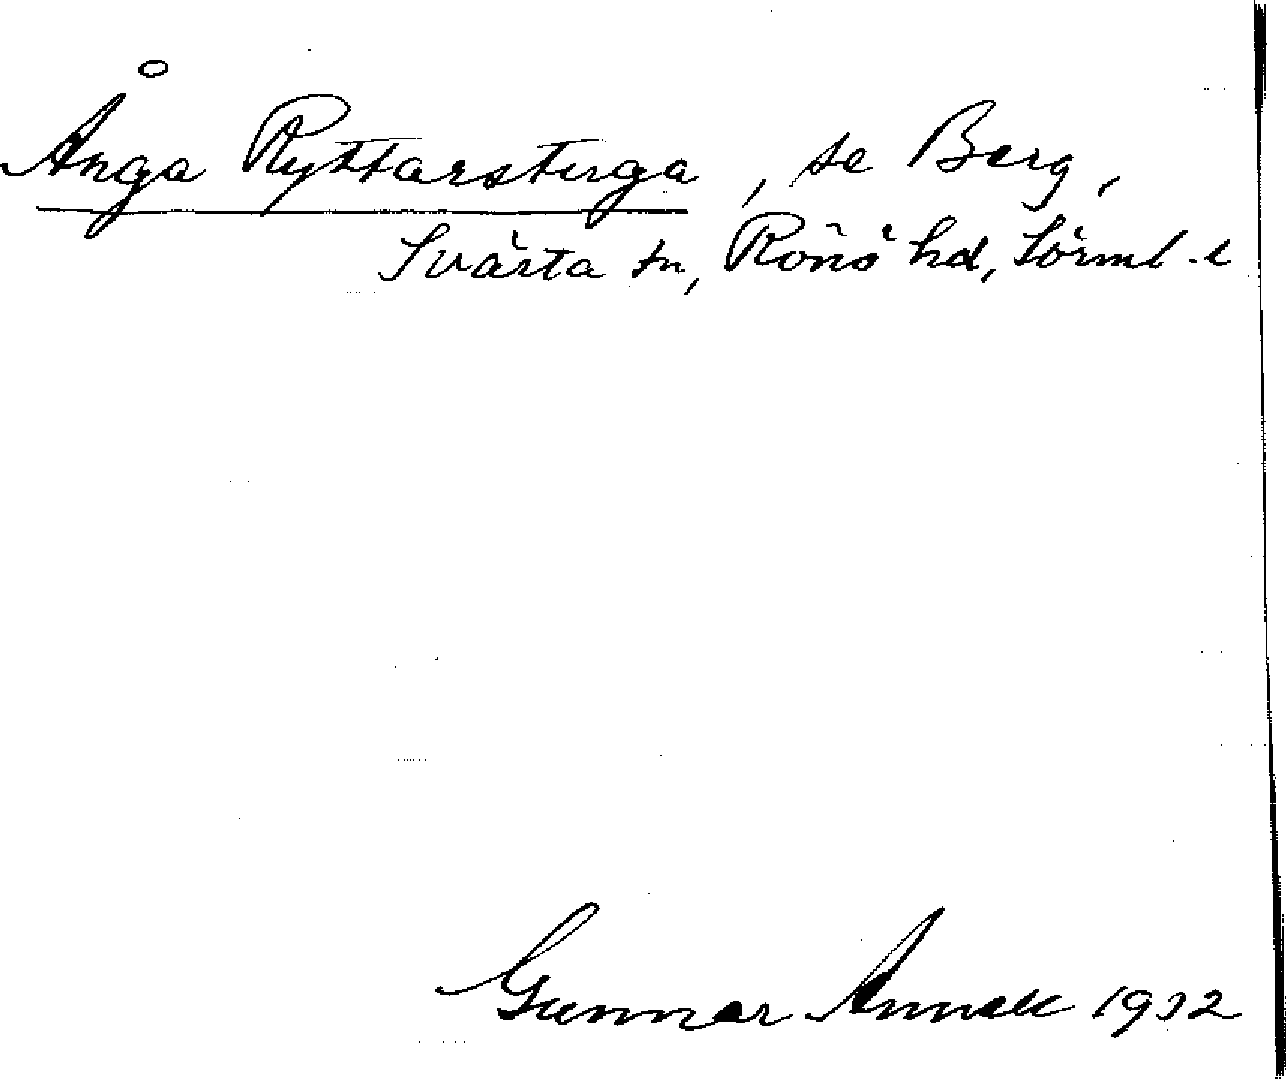 Ånga Ryttarstuga, se Berg,
Svärta sn, Rönö hd, Sörml. l
Gunnar Annell 1932